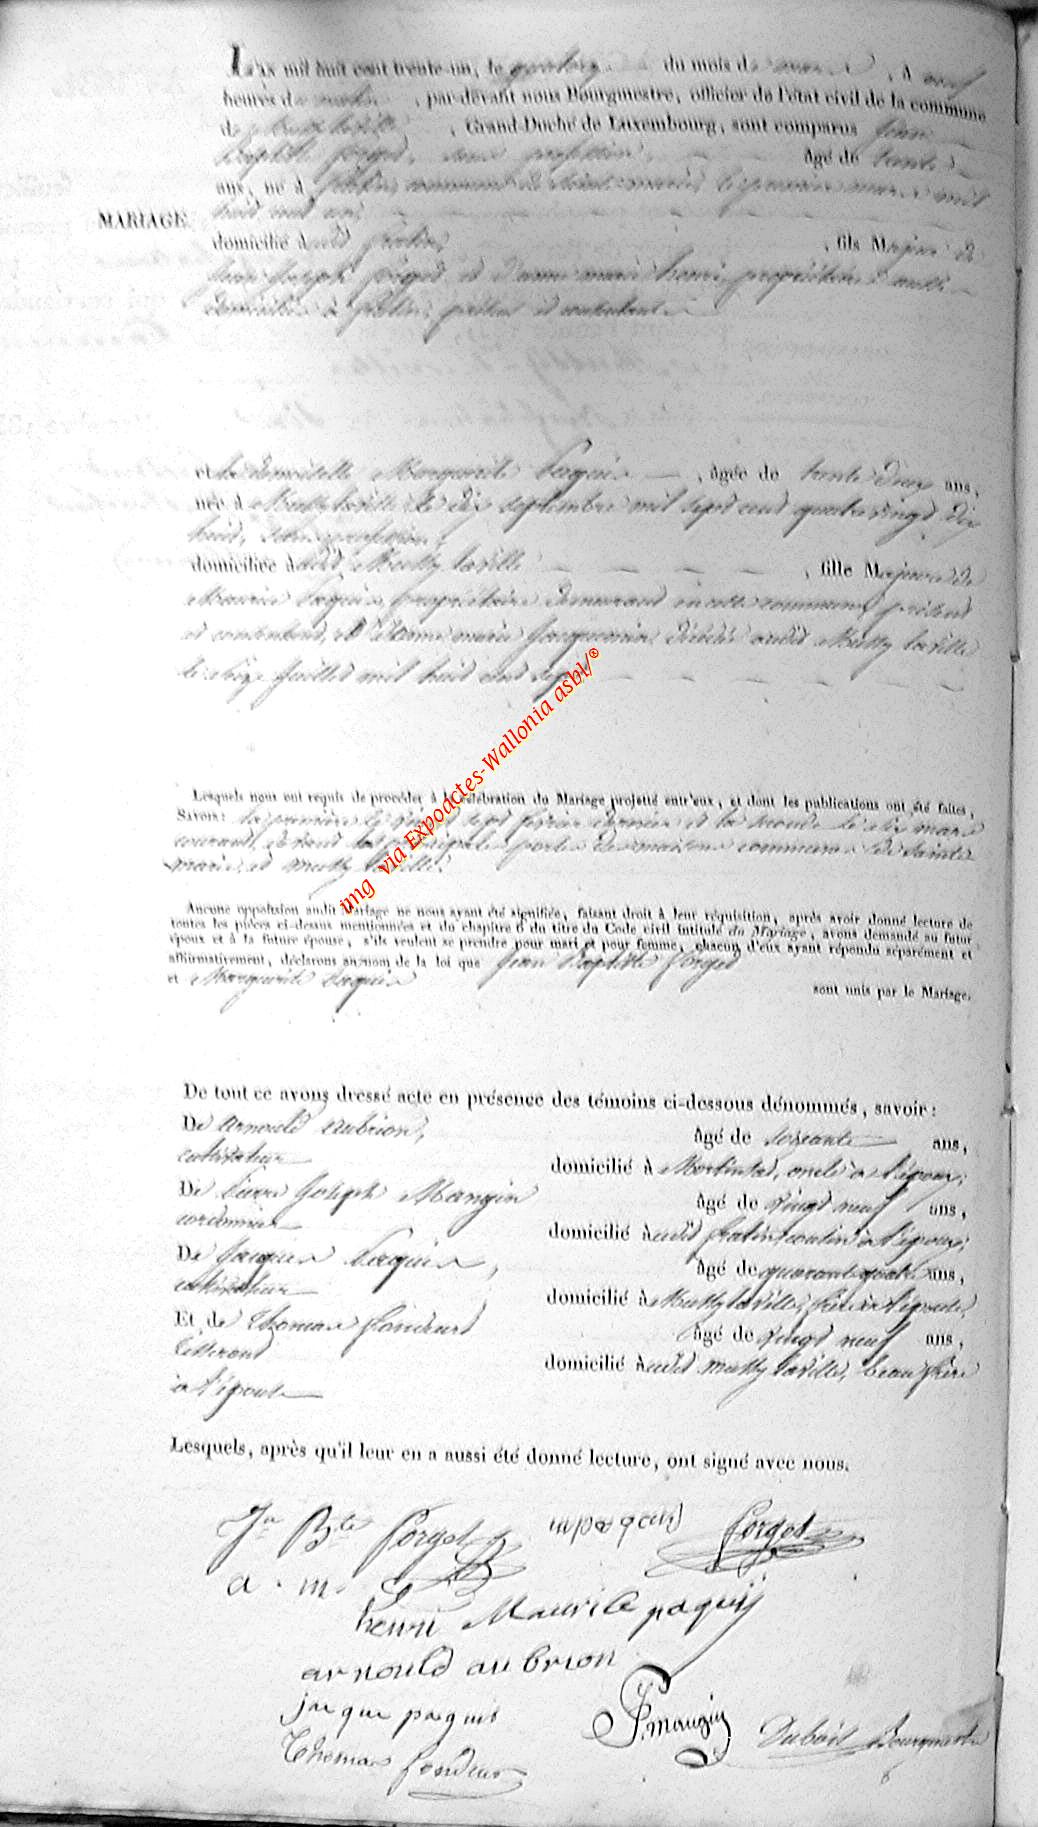 L'an mil huit cent trente-un, le quatorze du mois de mars, à neuf
heures du matin, par-devant nous Bourgmestre, officier de l'état civil de la commune
de, Grand-Duché de Luxembourg, sont comparus Jean
Baptiste Forget, sans profession, âgé de trente
ans, né à Fratin, commune de Sainte-marie, le premier mars mil
huit cent un,
MARIAGE.
domicilié audit Fratin, fils Majeur de
Jean Joseph Forget et d'anne marie henri, propriétaires
domiciliés à Fratin, présens et consentans
et la demoiselle Marguerite Paquis, âgée de trente deux ans,
née à Mussy laville le dix septembre mil sept cent quatre vingt dix
huit, sans profession,
domiciliée audit Mussy laville, fille Majeure de
Maurice Paquis, propriétaire demeurant en cette commune, présent
et consentant, et marie Jacquemin, décédée audit Mussy laville
le juillet mil huit cent sept
Lesquels nous ont requis de procéder à la célébration du Mariage projetté entr'eux, et dont les publications ont été faites,
Savoir: la première le vingt sept février dernier et la seconde le six mars
courant, devant les principales portes des maisons communes de Sainte
marie et Mussy laville.
Aucune opposition audit Mariage ne nous ayant été signifiée, faisant droit à leur réquisition, après avoir donné lecture de
toutes les pièces ci-dessus mentionnées et du chapitre 6 du titre du Code civil intitulé du Mariage, avons demandé au futur
époux et à la future épouse, s'ils veulent se prendre pour mari et pour femme, chacun d'eux ayant répondu séparément et
affirmativement, déclarons au nom de la loi que Jean Baptiste Forget
et Marguerite Paquis sont unis par le Mariage.
De tout ce avons dressé acte en présence des témoins ci-dessous dénommés, savoir:
De arnould aubrion, âgé de soixante ans,
cultivateur domicilié à, oncle à l'époux;
De Joseph Mangin âgé de vingt neuf ans,
cordonnier domicilié audit fratin, cousin à l'époux;
De Jacques Paquis, âgé de quarante quatre ans,
cultivateur domicilié à Mussy laville, frère à l'épouse,
Et de Thomas Fondeur âgé de vingt neuf ans,
tisserand domicilié audit mussy laville, beau frère
à l'épouse
Lesquels, après qu'il leur en a aussi été donné lecture, ont signé avec nous.
Jn Bte Forget m paquis Forget
a. m.
henri Maurice paquis
arnould aubrion
jacque paquis J. mangin Dubois Bourgmestre
Thomas fondeur
img via Expoactes-Wallonia asbl/®